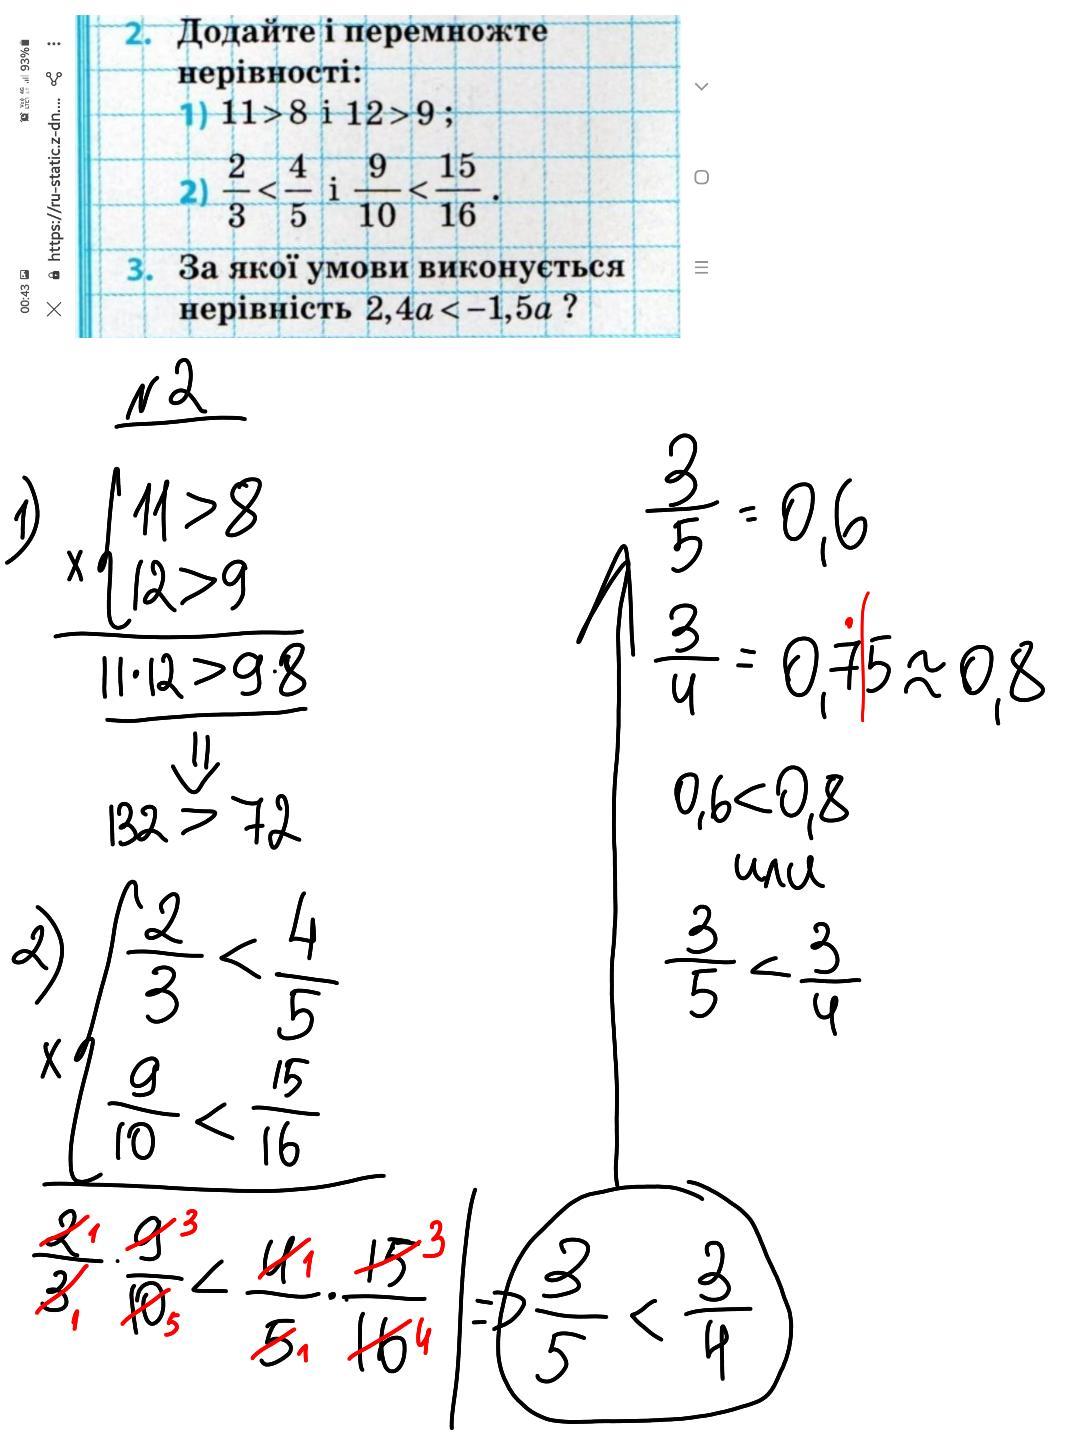 00:43 93%
https://ru-static.z-dn....
2. Додайте і перемножте
нерівності:
1) 11 > 8 і 12 > 9 ;
2) 2/3 < 4/5 і 9/10 < 15/16 .
3. За якої умови виконується
нерівність 2,4a < −1,5a ?
N2
1) 11 > 8
x
12 > 9
11·12 > 9·8
⇓
132 > 72
2) 2/3 < 4/5
x
9/10 < 15/16
2/3 · 9/10 < 4/5 · 15/16
1 3 1 3
1 5 1 4
=> 3/5 < 3/4
3/5 = 0,6
3/4 = 0,75 ≈ 0,8
0,6 < 0,8
или
3/5 < 3/4